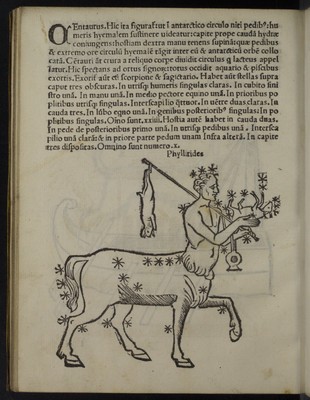 CEntaurus. Hic ita figuratur I antarctico circulo niti pedibꝰ: hu
meris hyemalem sustinere uideatur: capite prope caudã hydræ
coniungens: hostiam dextra manu tenens supinã: quæ pedibus
& extremo ore circulũ hyemalẽ tãgit inter eũ & antarcticũ orbẽ collo
catã. Crura
a reliquo corpe diuidit circulus q lacteus appel
latur. Hic spectans ad ortus signorũ: totus occidit aquario & piscibus
exortis. Exorit aũt cũ scorpione & sagitario. Habet aũt stellas supra
caput tres obscuras. In utrisqꝫ humeris singulas claras. In cubito sini
stro unã. In manu unã. In medio pectore equino unã. In prioribus po
plitibus utrisqꝫ singulas. Interscapilio q̃tuor. In uẽtre duas claras. In
cauda tres. In lũbo eqno unã. In genibus posterioribꝰ singulas: In po
plitibus singulas. Oĩno sunt .xxiiii. Hostia autẽ habet in cauda duas.
In pede de posterioribus primo unã. In utrisqꝫ pedibus unã. Intersca
pilio unã clarã: & in priore parte pedum unam Infra alterã. In capite
tres dispositas. Omnino sunt numero .x.
Phyllirides